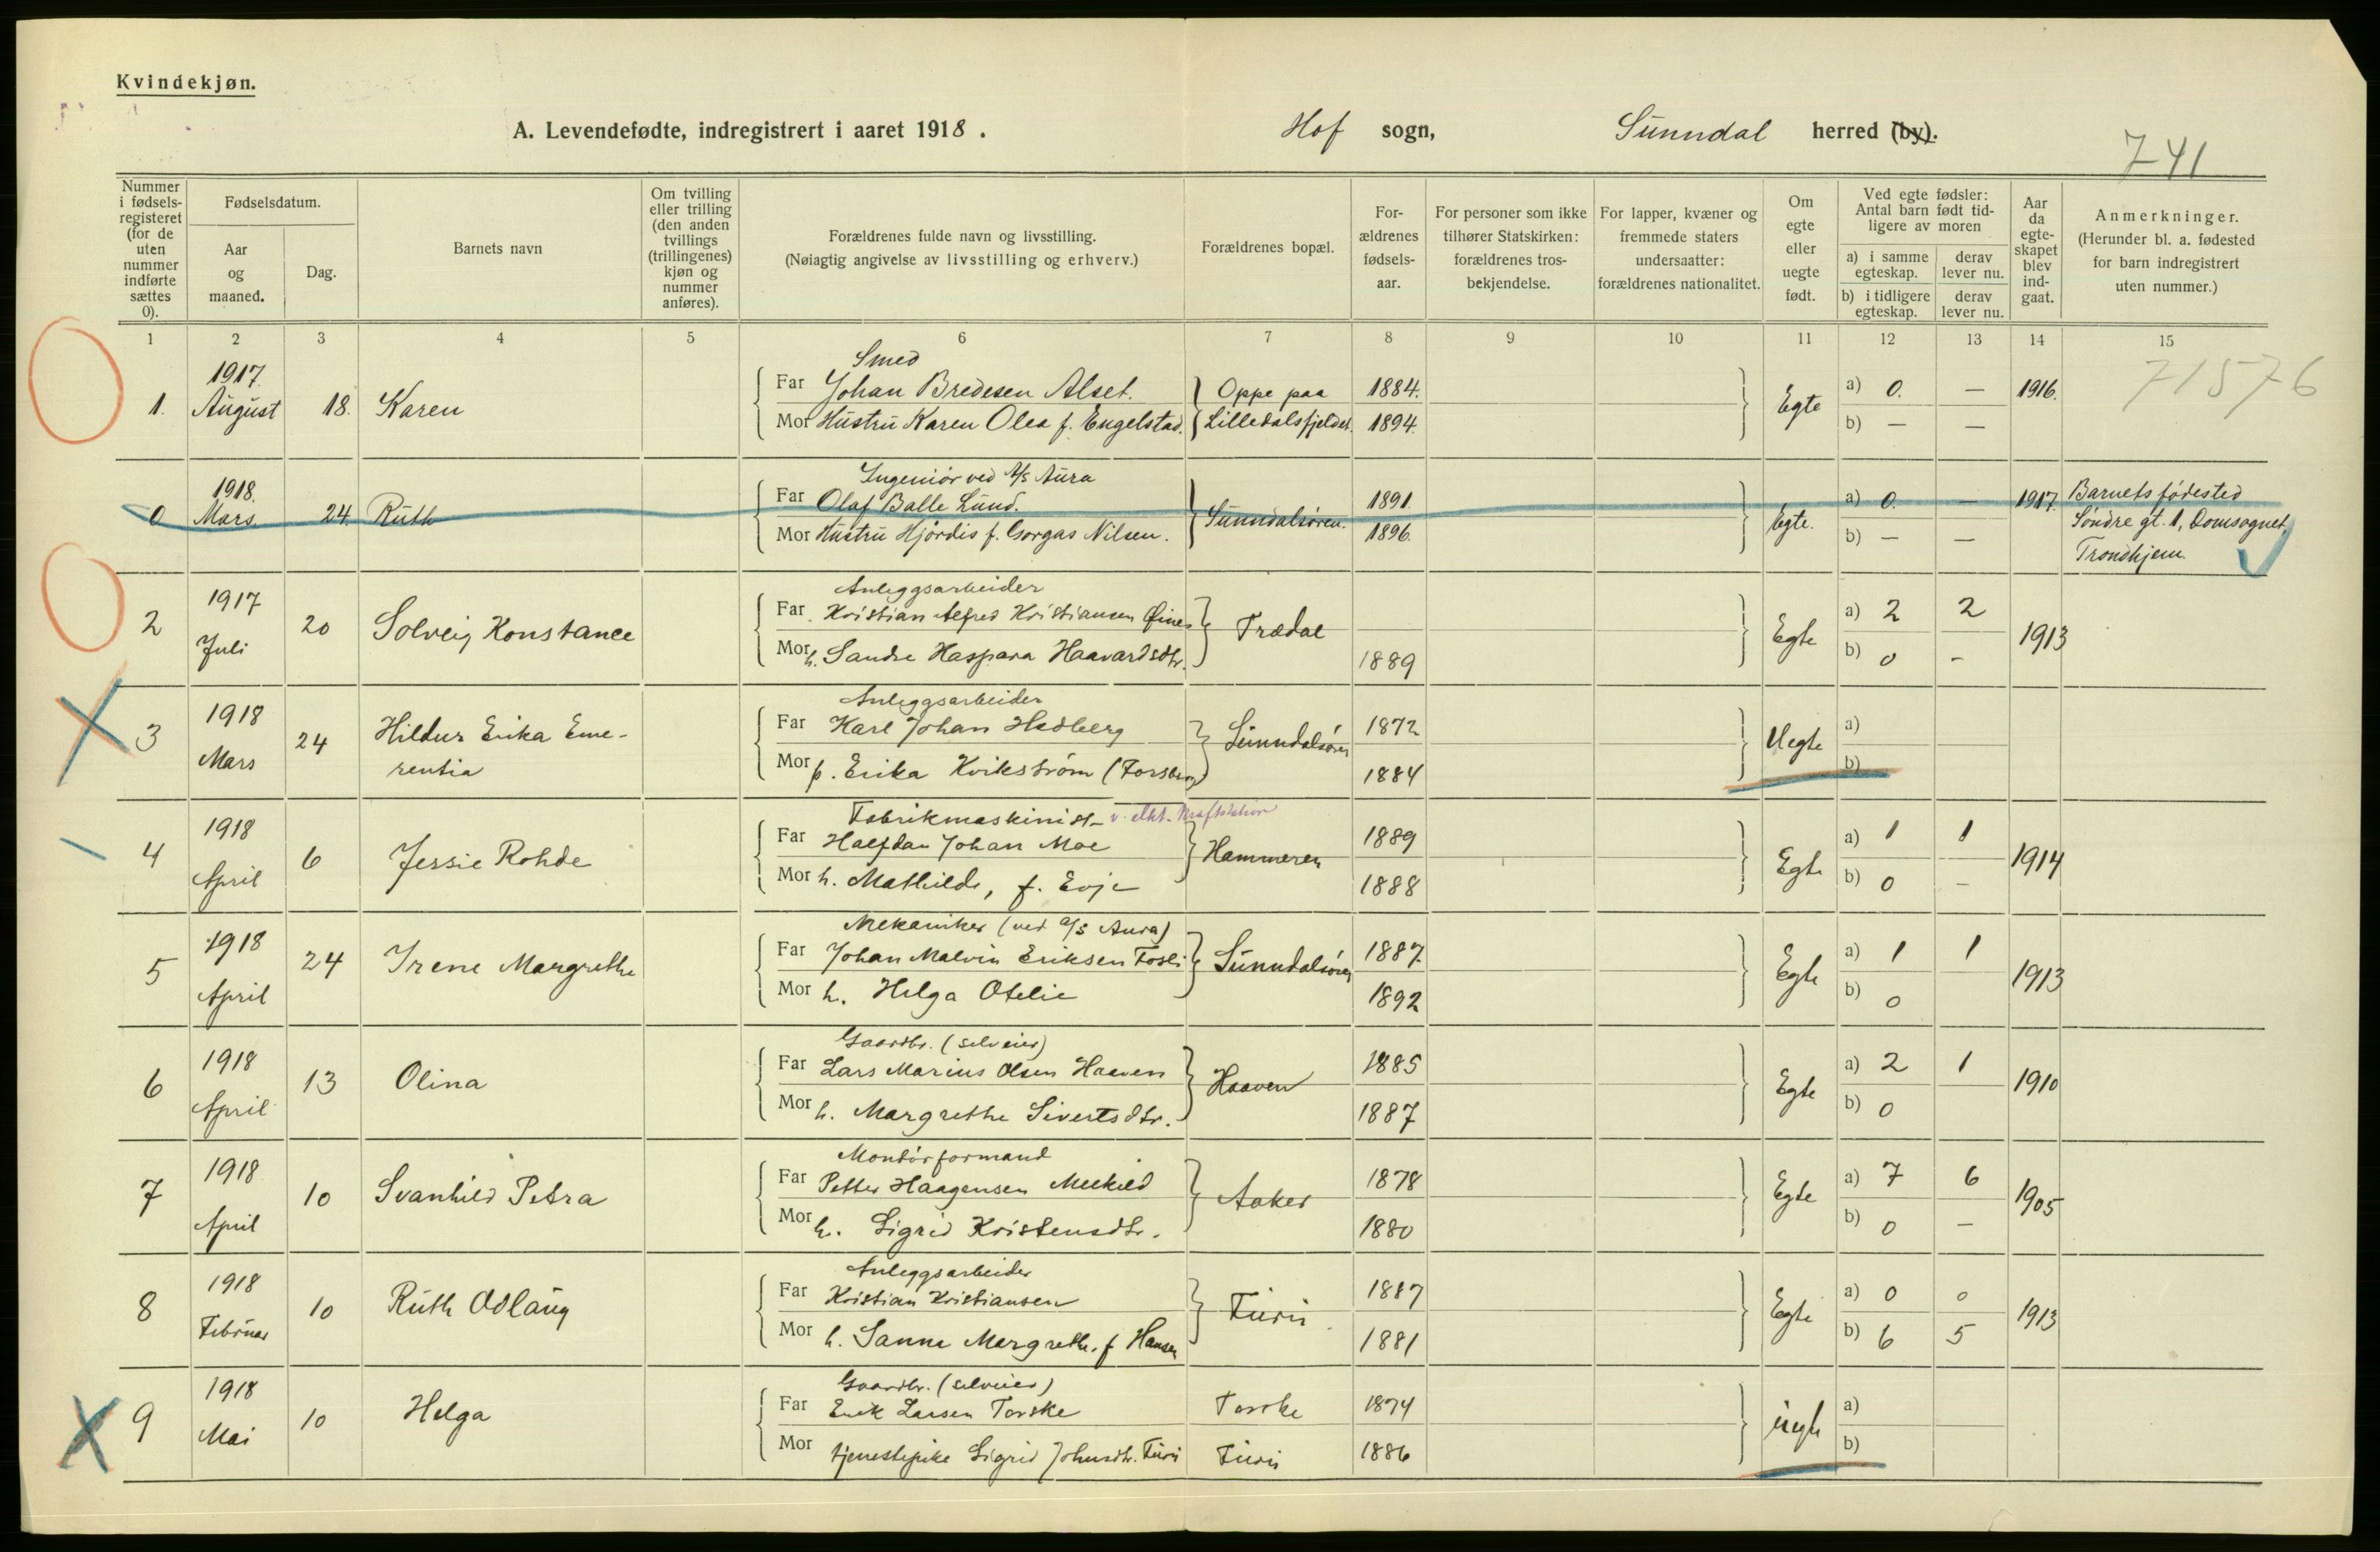 Kvindekjøn.
A. Levendefødte, indregistrert i aaret 1918. Hof sogn, Sunndal herred (by).
741
Nummer i fødselsregisteret (for de uten nummer indførte sættes 0).
Fødselsdatum.
Aar og maaned.
Dag.
Barnets navn
Om tvilling eller trilling (den anden tvillings (trillingenes) kjøn og nummer anføres).
Forældrenes fulde navn og livsstilling.
(Nøiagtig angivelse av livsstilling og erhverv.)
Forældrenes bopæl.
Forældrenes fødselsaar.
For personer som ikke tilhører Statskirken: forældrenes trosbekjendelse.
For lapper, kvæner og fremmede staters undersaatter: forældrenes nationalitet.
Om egte eller uegte født.
Ved egte fødsler: Antal barn født tidligere av moren
a) i samme egteskap. derav lever nu.
b) i tidligere egteskap. derav lever nu.
Aar da egteskapet blev indgaat.
Anmerkninger.
(Herunder bl. a. fødested for barn indregistrert uten nummer.)
1 2 3 4 5 6 7 8 9 10 11 12 13 14 15
71576
Smed
1. 1917. August 18. Karen
Far Johan Bredesen Alset. Oppe paa 1884. Egte a) 0. — 1916.
Mor Hustru Karen Olea f. Engelstad. Lilledalsfjeldet. 1894. b) — —
Ingeniør ved A/s Aura
0 1918. Mars. 24. Ruth
Far Olaf Balle Lund. Sunndalsøren. 1891. Egte. a) 0. — 1917. Barnets fødested
Mor Hustru Hjørdis f. Gorgas Nilsen. 1896. b) — — Søndre gt. 1, Domsognet,
Trondhjem.
Anleggsarbeider
2 1917 Juli 20 Solveig Konstance
Far Kristian Alfred Kristiansen Øines Trædal Egte a) 2 2 1913
Mor h. Sandre Kaspara Haavardsdtr. 1889 b) 0 -
Anleggsarbeider
3 1918 Mars 24 Hildur Erika Emerentia
Far Karl Johan Hedberg Sunndalsøren 1872 Uegte a)
Mor p. Erika Kvikström (Forsberg) 1884 b)
Fabrikmaskinist v. elkt. Kraftstation
4 1918 April 6 Jessie Rohde
Far Halfdan Johan Moe Hammeren 1889 Egte a) 1 1 1914
Mor h. Mathilde, f. Evje 1888 b) 0 -
Mekaniker (ved a/s Aura)
5 1918 April 24 Irene Margrethe
Far Johan Malvin Eriksen Fosli Sunndalsøren 1887 Egte a) 1 1 1913
Mor h. Helga Otelie 1892 b) 0
Gaardbr. (selveier)
6 1918 April 13 Olina
Far Lars Marius Olsen Haaven Haaven 1885 Egte a) 2 1 1910
Mor h. Margrethe Sivertsdtr. 1887 b) 0
Montørformand
7 1918 April 10 Svanhild Petra
Far Petter Haagensen Aaker 1878 Egte a) 7 6 1905
Mor h. Sigrid Kristensdtr. 1880 b) 0 —
Anleggsarbeider
8 1918 Februar 10 Ruth Odlaug
Far Kristian Kristiansen Furu 1887 Egte a) 0 0 1913
Mor h. Sanna Margrethe f Hansen 1881 b) 6 5
Gaardbr. (selveier)
9 1918 Mai 10 Helga
Far Erik Larsen Torske Torske 1874 uegte a)
Mor tjenestepike Sigrid Johnsdtr. Furu Furu 1886 b)